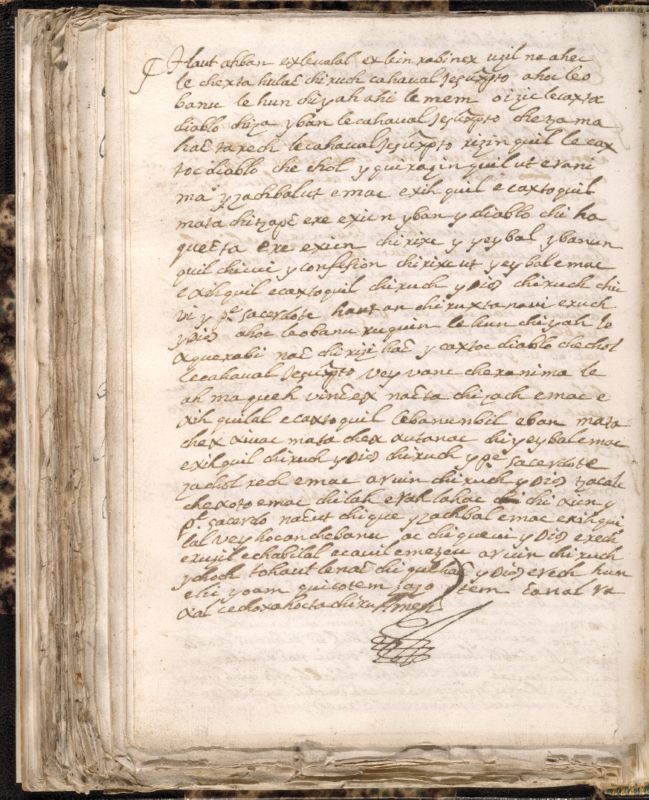 Haut ahban exleualal exbin rabinex uzil na ahec
le chexta hulac chi ruch cahaual Jesuxpto ahoc leo
banu le hun chi yah ahi le mem oizic le caxta
diablo chiza yban le cahaual Jesuxpto cheza ma
hac ta rech le cahaual Jesuxpto rizin quil le cax
toc diablo che chol y quirazin quil ut erani
ma y zachbal ut emac exih quil ecaxtoquil
mata chi ere exien yban y diablo chi ha
quecta ere exien chirixe y yeybal ybanun
quil chi y confesion chirixc ut yeybal emac
exihquil ecaxtoquil chi ruch y Dios chi ruch chic
y pe sacerdote hautan chi ruxta naui eruch
y Dios ahoc laobanu ruquin le hun chi yah lo
xquerabii nac chi rizi hac y caxtoc diablo chechol
le cahaual Jesuxpto vey vanc charanima le
ah maqueh vincex nacta chi zach emac e
xihquilal ecaxtoquil lebanunbil eban mata
chex xiuac mata chex xutanac chi yeybal emac
exihquil chi ruch y Dios chi ruch y pe sacerdote
zachol rech emac aruin chi ruch y Dios
chexoto emac chilah erah lahac chi xcun y
pe sacerdo nacut chi que y zachbal emac exihqui
lal vey hocan chebanu ac chi queui y Dios erech
exuzil echabilal ecauil emezeu aruin chi ruch
y choch tohaut lenac chi que hac y Dios erech hun
elic yoam quicotem tem
xal cedoxahocta chi ru Amen